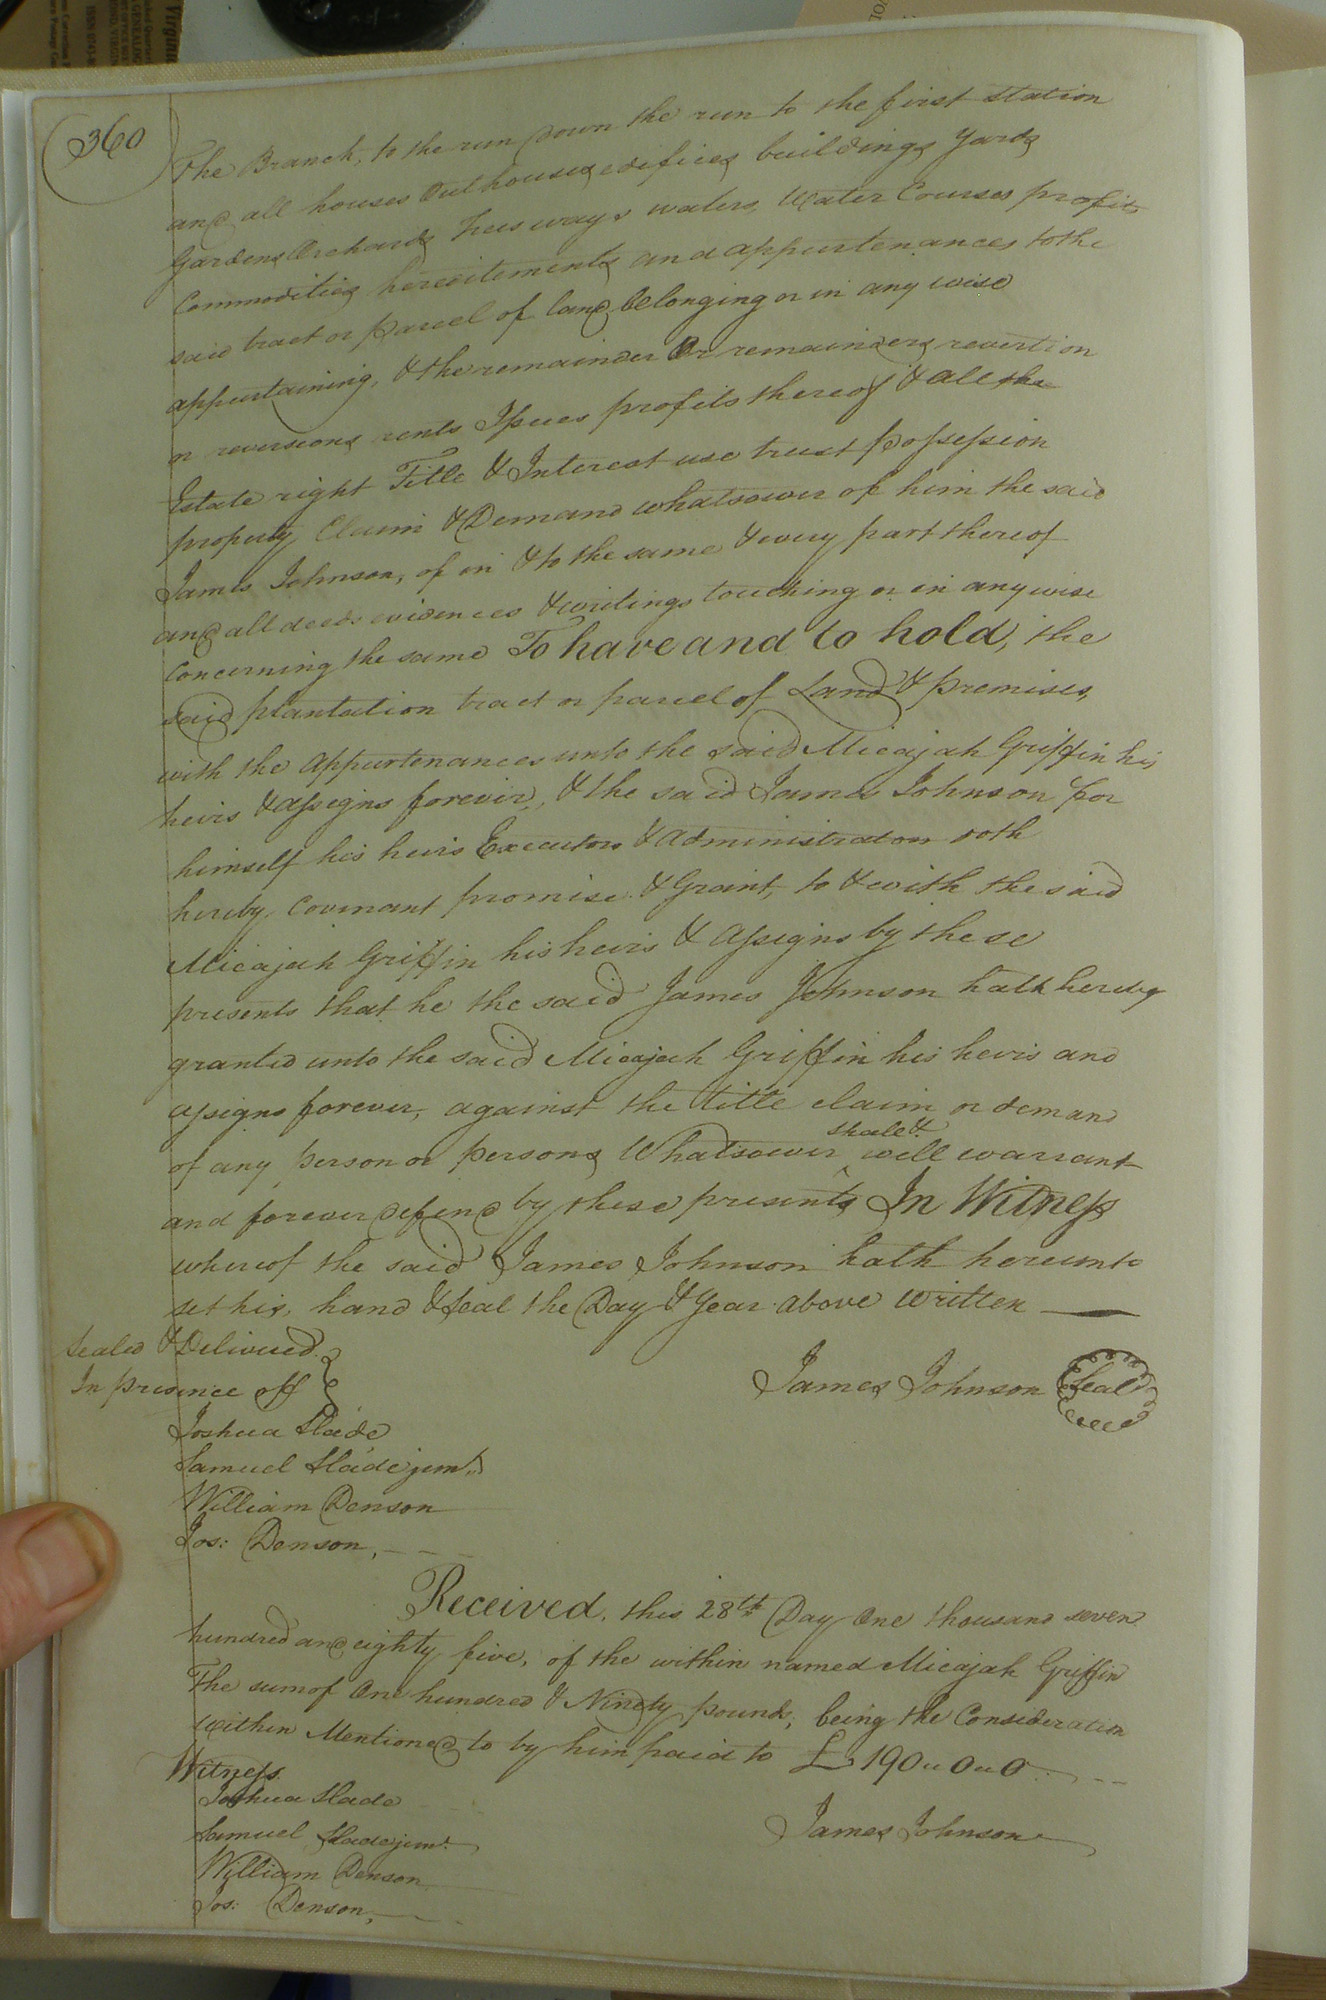 360
The Branch, to the run down the run to the first station
and all houses Outhouses edifices buildings Yards
Gardens Orchards Trees ways waters, Water Courses profits
Commodities hereditements and appurtenances to the
said tract or parcel of land belonging or in any wise
appurtaining, & the remainder Or remainders revertion
or reversions rents Issues profits thereof & all the
Estate right Title & Interest use trust possession
property Claim & Demand whatsoever of him the said
James Johnson, of in & to the same & every part thereof
and all deeds evidences & writings touching or in any wise
Concerning the same To have and to hold, the
said plantation tract or parcel of Land & premises,
with the Appurtenances unto the said Micajah Griffin his
heirs & assigns forever, & the said James Johnson for
himself his heirs Executors & Administrators doth
hereby Covenant promise & Graint, to & with the said
Micajah Griffin his heirs & Assigns by these
presents that he the said James Johnson hath hereby
granted unto the said Micajah Griffin his heirs and
assigns forever, against the title claim or demand
of any person or persons Whatsoever shall & will warrant
and forever defend by these presents In Witness
whereof the said James Johnson hath hereunto
set his hand & seal the Day & Year above written
Sealed & Delivered
In presence off
James Johnson Seal
Joshua Slade
Samuel Slade junr.
William Denson
Jos: Denson,
Received, this 28th Day One thousand seven
hundred and eighty five, of the within named Micajah Griffin
The sum of One hundred & Ninety pounds, being the Consideration
within Mentioned to by him paid to £190 " 0 " 0
Witness
Joshua Slade
James Johnson
Samuel Slade junr.
William Denson
Jos: Denson,
Virgin